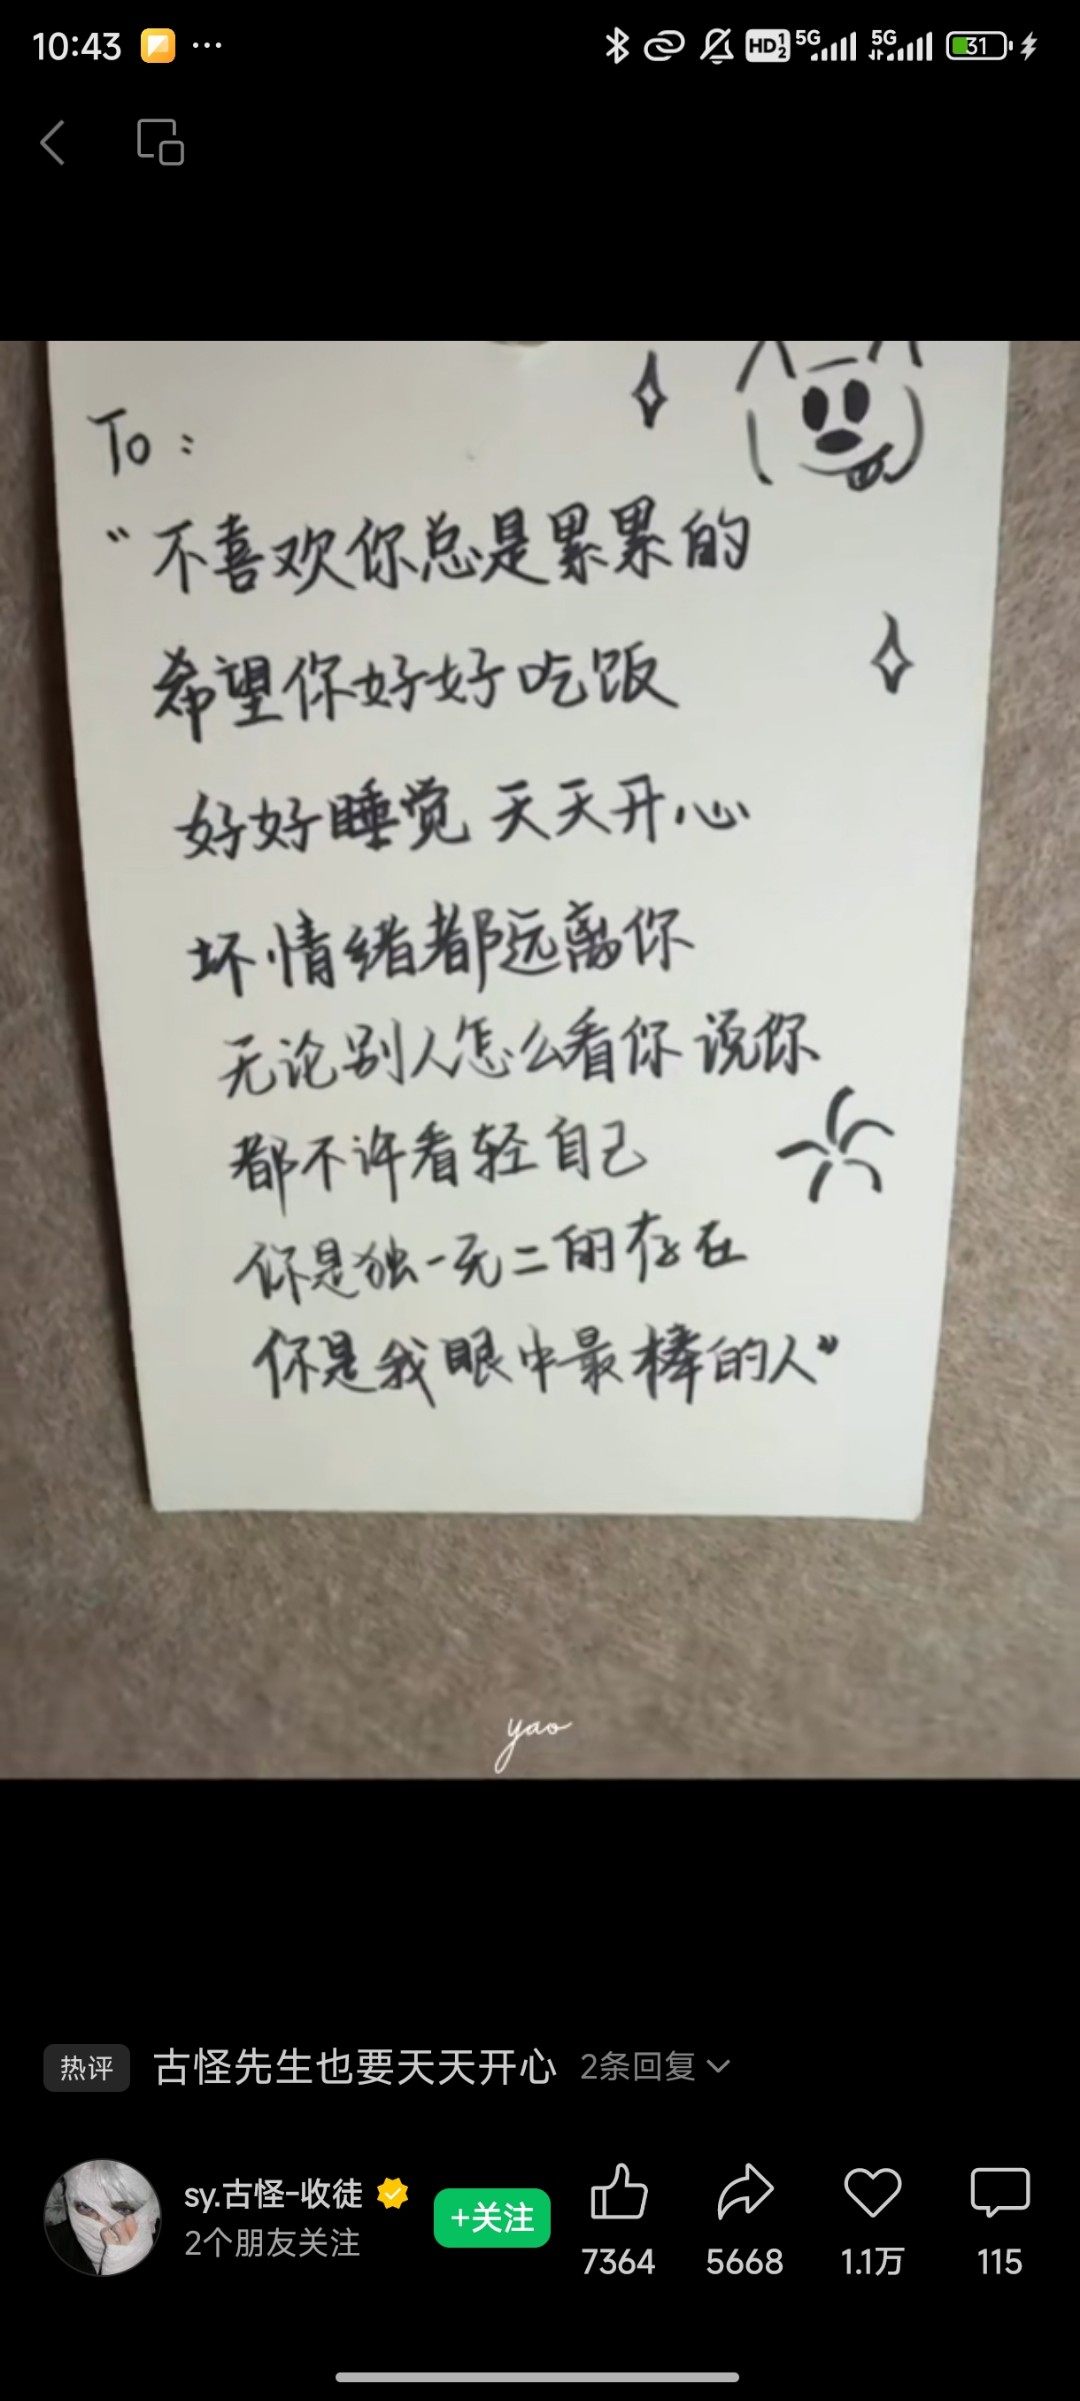 10:43
HD 1 2 5G 5G 31
To:
“不喜欢你总是累累的
希望你好好吃饭
好好睡觉 天天开心
坏情绪都远离你
无论别人怎么看你 说你
都不许看轻自己
你是独一无二的存在
你是我眼中最棒的人”
yao
热评 古怪先生也要天天开心 2条回复
sy.古怪-收徒
2个朋友关注
+关注
7364 5668 1.1万 115